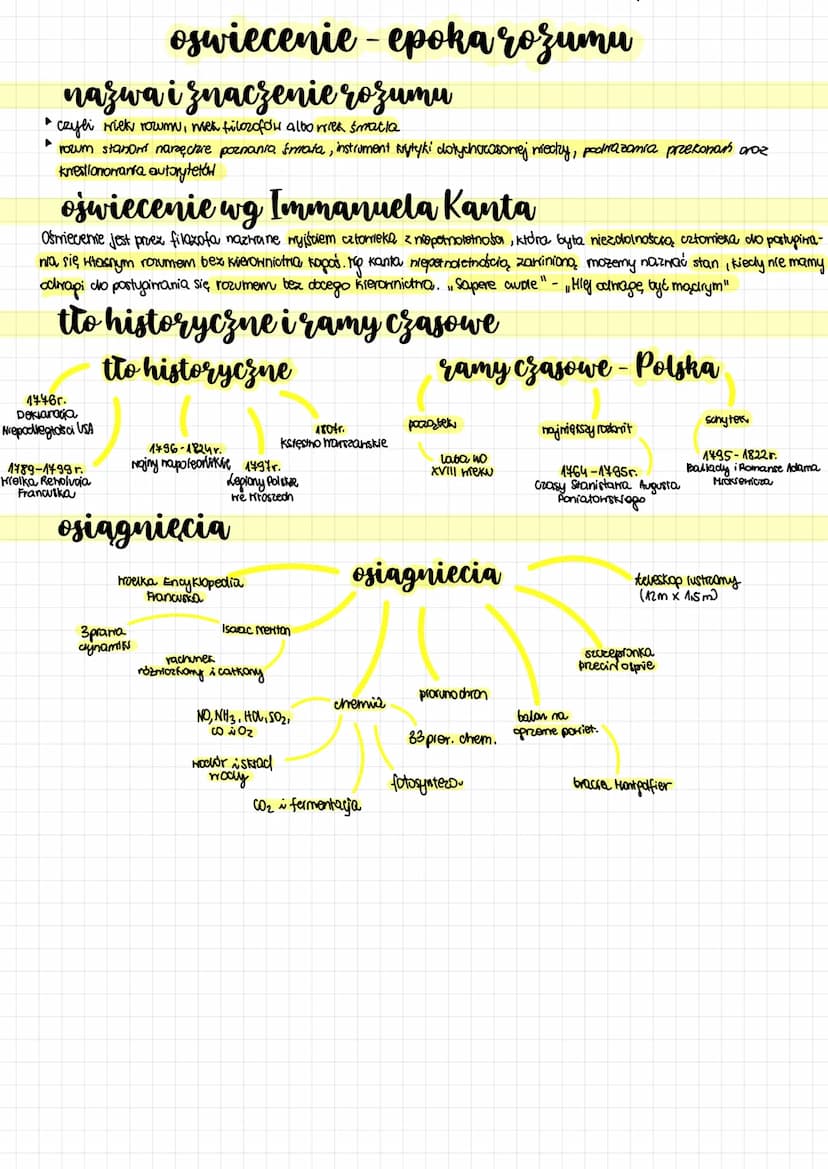 oswiecenie - epoka rozumu
nazwa i znaczenie rozumu
‣ czyli wieku rozumu, wiek filozofów albo wiek światła
‣ rozum stanowi narzędzie poznania świata, instrument krytyki dotychczasowej wiedzy, podważania przekonań oraz
kwestionowania autorytetów
oświecenie wg Immanuela Kanta
Oświecenie jest przez filozofa nazwane wyjściem człowieka z niepełnoletności, która była niezdolnością człowieka do posługiwa-
nia się własnym rozumem bez kierownictwa kogoś. Wg Kanta niepełnoletnością zawinioną możemy nazwać stan, kiedy nie mamy
odwagi do posługiwania się rozumem bez obcego kierownictwa. „Sapere aude" - „Miej odwagę być mądrym"
tło historyczne i ramy czasowe
tło historyczne
1776r.
Deklaracja
Niepodległości USA
1789-1799r.
Wielka Rewolucja
Francuska
1796-1824r.
wojny napoleońskie
1797r.
Legiony Polskie
we Włoszech
1807r.
Księstwo Warszawskie
ramy czasowe - Polska
początek
Lata 40
XVIII wieku
największy rozkwit
1764-1795r.
Czasy Stanisława Augusta
Poniatowskiego
schyłek
1795-1822r.
Ballady i Romanse Adama
Mickiewicza
osiągnięcia
osiągniecia
Wielka Encyklopedia
Francuska
Isaac Newton
3 prawa
dynamiki
rachunek
różniczkowy i całkowy
chemia
NO, NH3, HCl, SO2,
CO i O2
wodór i skład
wody
CO2 i fermentacja
fotosynteza
33 pier. chem.
piorunochron
balon na
ogrzane powiet.
bracia Montgolfier
szczepionka
przeciw ospie
teleskop lustrzany
(12m x 1,5m)